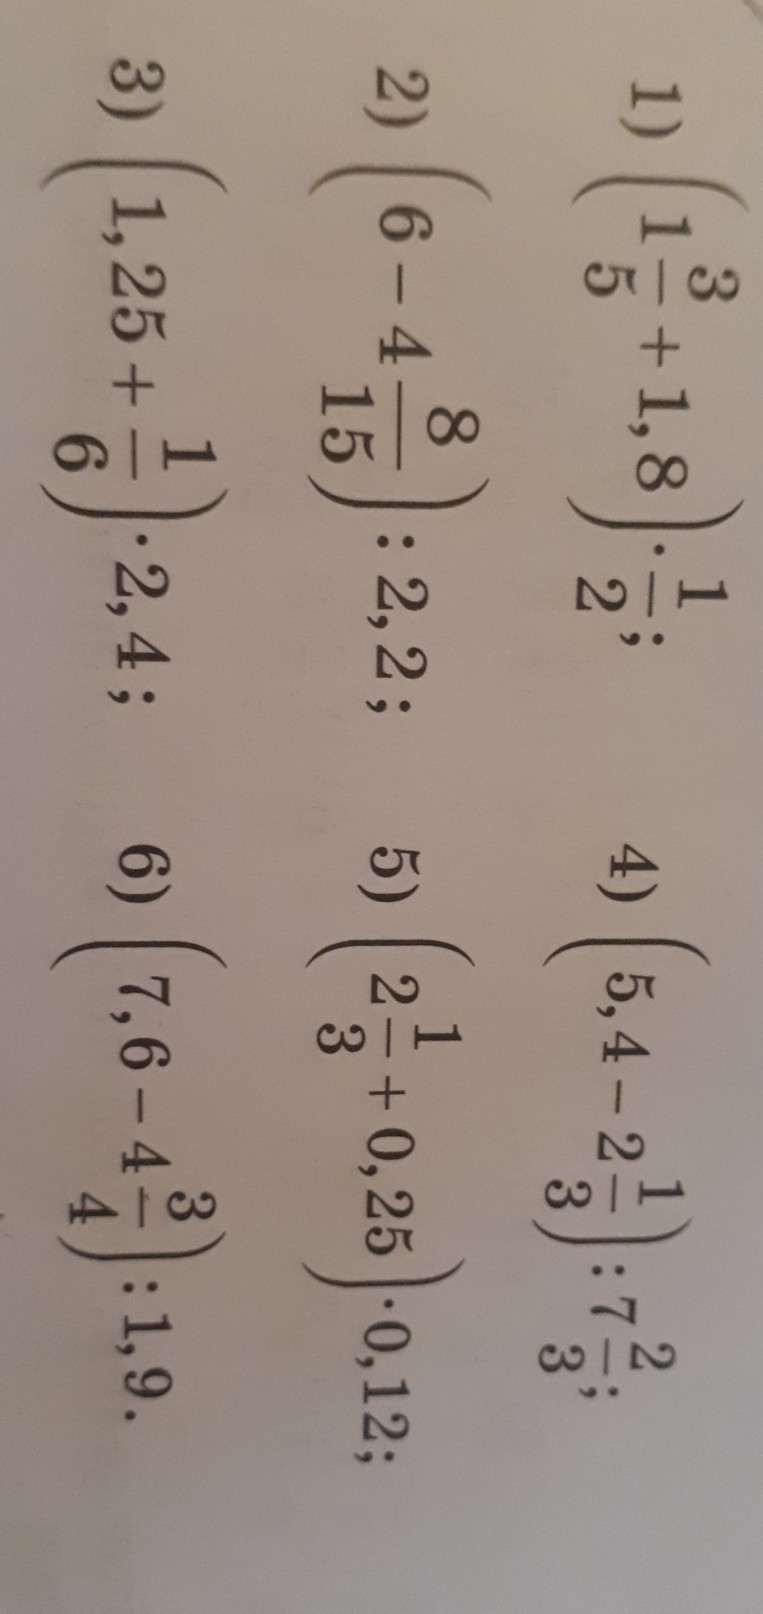 1) (1 3/5 + 1,8) · 1/2;
2) (6 − 4 8/15) : 2,2;
3) (1,25 + 1/6) · 2,4;
4) (5,4 − 2 1/3) : 7 2/3;
5) (2 1/3 + 0,25) · 0,12;
6) (7,6 − 4 3/4) : 1,9.